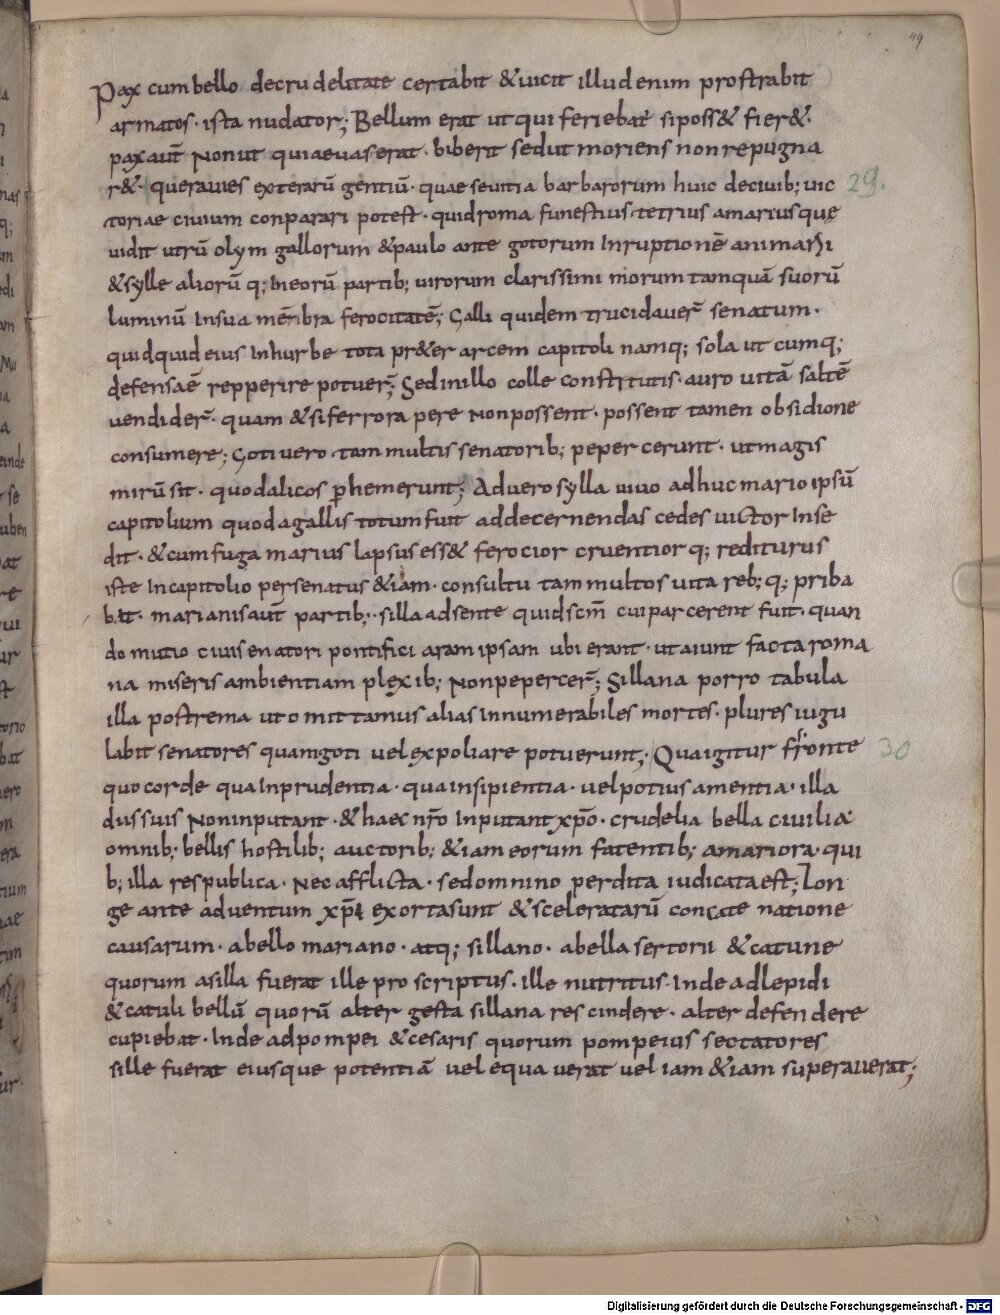 49
Pax cum bello decrudelitate certabit & uicit illud enim prostrabit
armatos · ista nudator; Bellum erat ut qui feriebat̄ si poss& fier&·
pax aut̄ Non ut qui aeuaserat · biberit sed ut moriens non repugna
r&· quera uies exterarū gentiū · quae seuitia barbarorum huic deciuib; uic 29.
toriae ciuium conparari potest · quid roma funestius tetrius amariusque
uidit utrū olym gallorum & paulo ante gotorum Inruptionē an imarii
& sylle aliorū q; Ineorū partib; uirorum clarissimi morum tamquā suorū
luminū Insua mēnbra ferocitatē; Galli quidem trucidauer̄ senatum·
quidquid eius Inhurbe tota pr&er arcem capitoli namq; sola ut cumq;
defensaē repperire potuer̄; Sed inillo colle constitutis · auro uitā saltē
uendider̄· quam & si ferro rapere Non possent · possent tamen obsidione
consumere; Goti uero tam multis senatorib; pepercerunt · ut magis
mirū sit · quod alicos p̄hemerunt; Aduero sylla uiuo adhuc mario ipsū
capitolium quod agallis totum fuit addecernendas cedes uictor Inse
dit · & cum fuga marius lapsus ess& ferocior cruentior q; rediturus
iste Incapitolio per senatus & iam · consultu tam multos uita reb; q; priba
bit · marianis aut̄ partib; · silla adsente quid scm̄ cui parcerent fuit · quan
do mutio ciui senatori pontifici aram ipsam ubi erant · ut aiunt facta roma
na miseris ambientiam plexib; Non pepercer̄; Sillana porro tabula
illa postrema ut omittamus alias Innumerabiles mortes · plures iugu
labit senatores quam goti uel expoliare potuerunt; Qua igitur fronte 30
quo corde qua Inprudentia · qua insipientia · uel potius amentia · illa
dus suis Non inputant · & haec nr̄o Inputant xp̄o · crudelia bella ciuilia
omnib; bellis hostilib; auctorib; & iam eorum fatentib; amariora · qui
b; illa respublica · Nec afflicta · sed omnino perdita iudicata est; Lon
ge ante aduentum xp̄i exorta sunt & sceleratarū concate natione
causarum · abello mariano · atq; sillano · abella sertorii & catune
quorum asilla fuerat ille proscriptus · ille nutritus · Inde adlepidi
& catuli bellū quorū alter gesta sillana rescindere · alter defendere
cupiebat · Inde adpompei & cesaris quorum pompeius sectatores
sille fuerat eiusque potentiā uel equa uerat uel iam & iam superauerat;
Digitalisierung gefördert durch die Deutsche Forschungsgemeinschaft - DFG